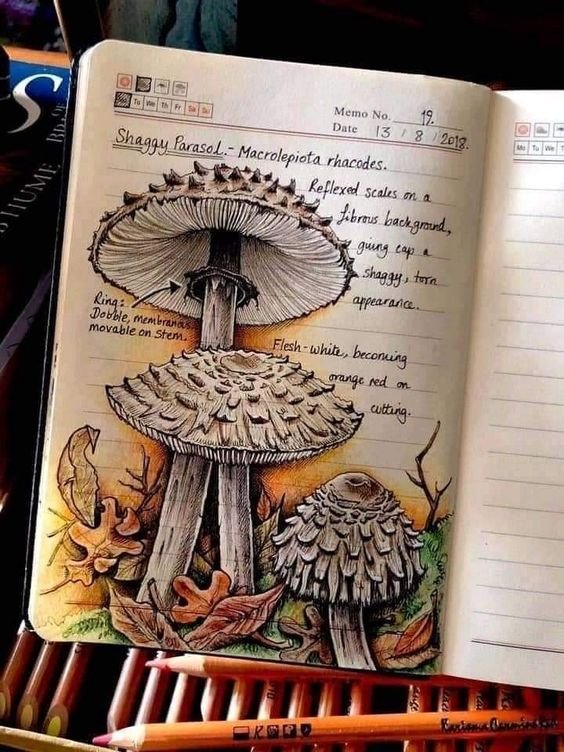 Tu We Th Fr Sa Su
Memo No. 19.
Date 13 / 8 / 2018.
Shaggy Parasol. - Macrolepiota rhacodes.
Reflexed scales on a
fibrous background,
giving cap a
shaggy, torn
appearance.
Ring:
Dobble, membranous
movable on stem.
Flesh-white, becoming
orange red on
cutting.
Mo Tu We
S
HUME